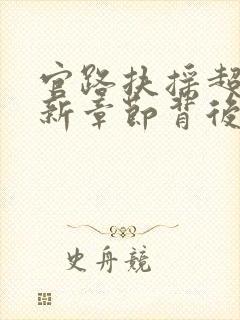 官路扶摇超
新章节背後
史舟競